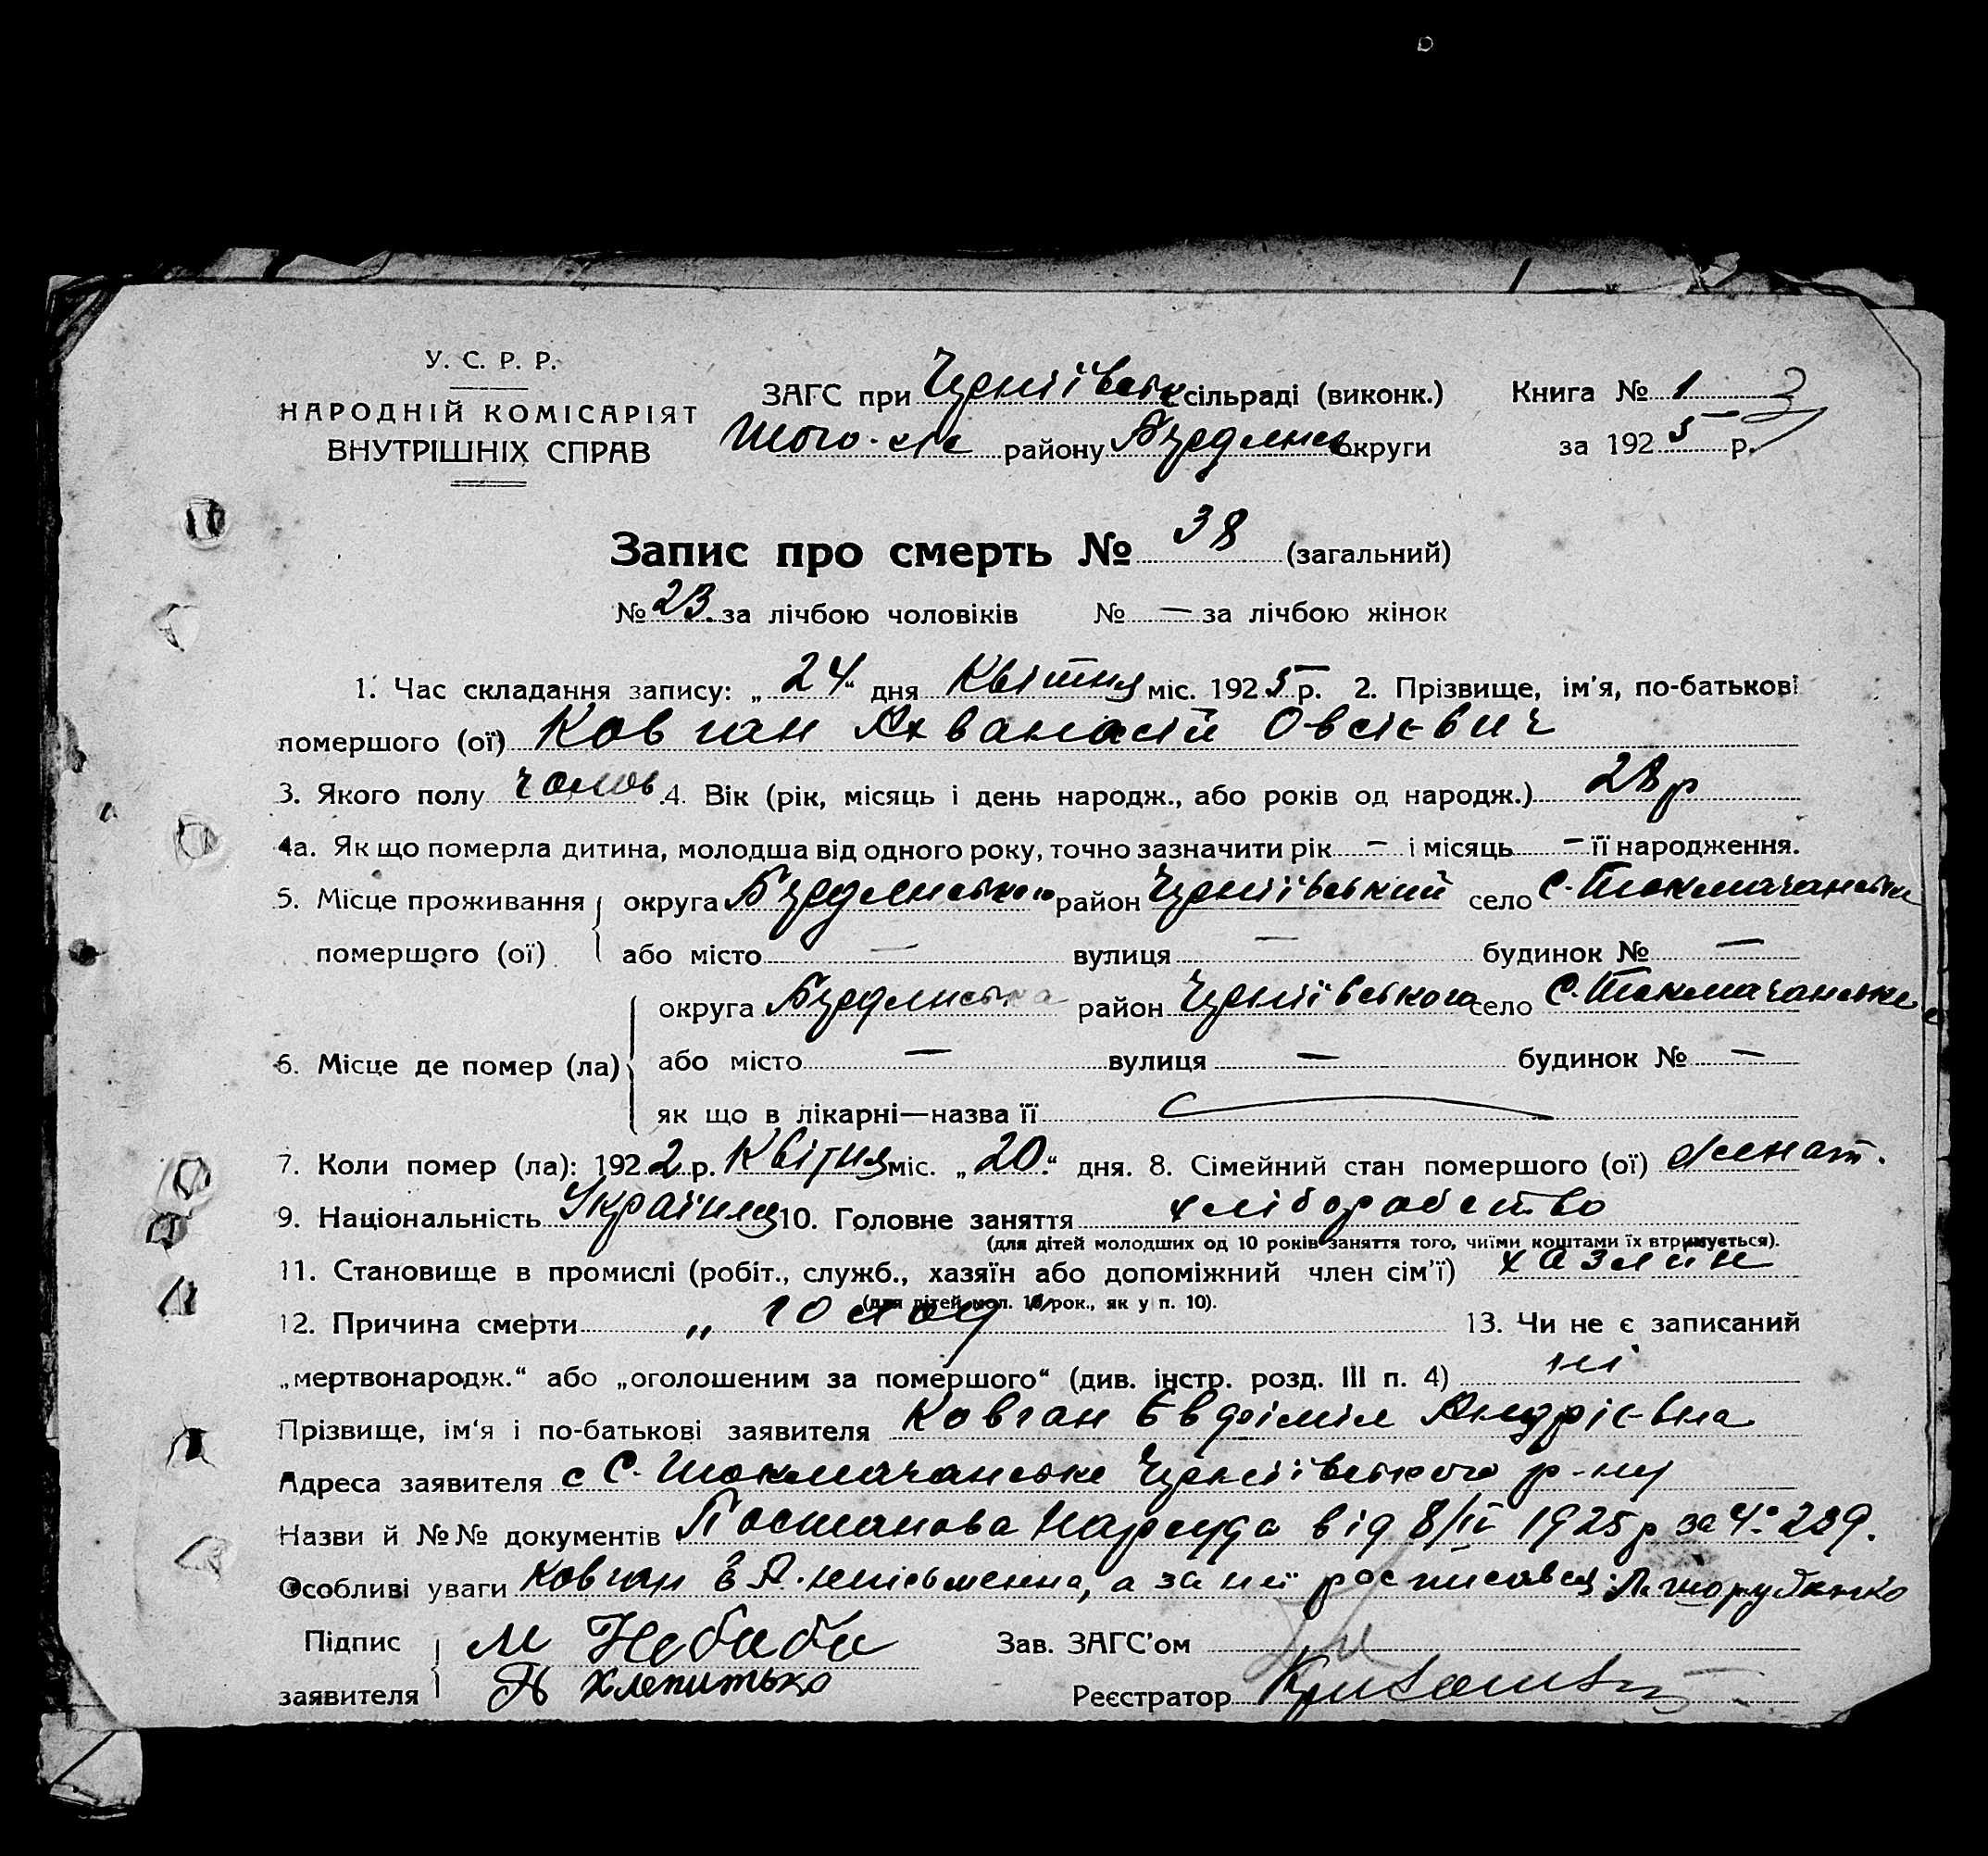 У. С. Р. Р.
НАРОДНІЙ КОМІСАРІЯТ
ВНУТРІШНІХ СПРАВ
ЗАГС при Черніївськ сільраді (виконк.)
Того-ж району Бердянсь округи
Книга № 1 3
за 1925 р.
Запис про смерть № 38 (загальний)
№ 23. за лічбою чоловіків № — за лічбою жінок
1. Час складання запису: „ 24 “ дня Квітня міс. 1925 р. 2. Прізвище, ім'я, по-батькові
помершого (ої) Ковган Ахванасій Овсієвич
3. Якого полу чолов. 4. Вік (рік, місяць і день народж., або років од народж.) 28 р
4а. Як що померла дитина, молодша від одного року, точно зазначити рік — і місяць — її народження.
5. Місце проживання округа Бердянського район Черніївський село С. Токмачанське
помершого (ої) або місто — вулиця — будинок № —
округа Бердянська район Черніївського село С. Токмачанське
6. Місце де помер (ла) або місто — вулиця — будинок № —
як що в лікарні—назва її
7. Коли помер (ла): 1922 р. Квітня міс. „ 20 “ дня. 8. Сімейний стан помершого (ої) женат.
9. Національність Українец 10. Головне заняття хліборобство
(для дітей молодших од 10 років заняття того, чиїми коштами їх втримується).
11. Становище в промислі (робіт., служб., хазяїн або допоміжний член сім'ї) хазяин
(для дітей мол. 10 рок., як у п. 10).
12. Причина смерти „ голод “ 13. Чи не є записаний
„мертвонародж.“ або „оголошеним за помершого“ (див. інстр. розд. III п. 4) ні
Прізвище, ім'я і по-батькові заявителя Ковган Євфімія Андрієвна
Адреса заявителя с С. Токмачанське Черніївського р-ну
Назви й №№ документів Постанова Нарсуда від 8/IV 1925 р за Ч: 289.
Особливі уваги Ковган Є А. непісьменна, а за неї росписався:
Підпис М Небаба Зав. ЗАГС'ом
заявителя Хлепитько Реєстратор